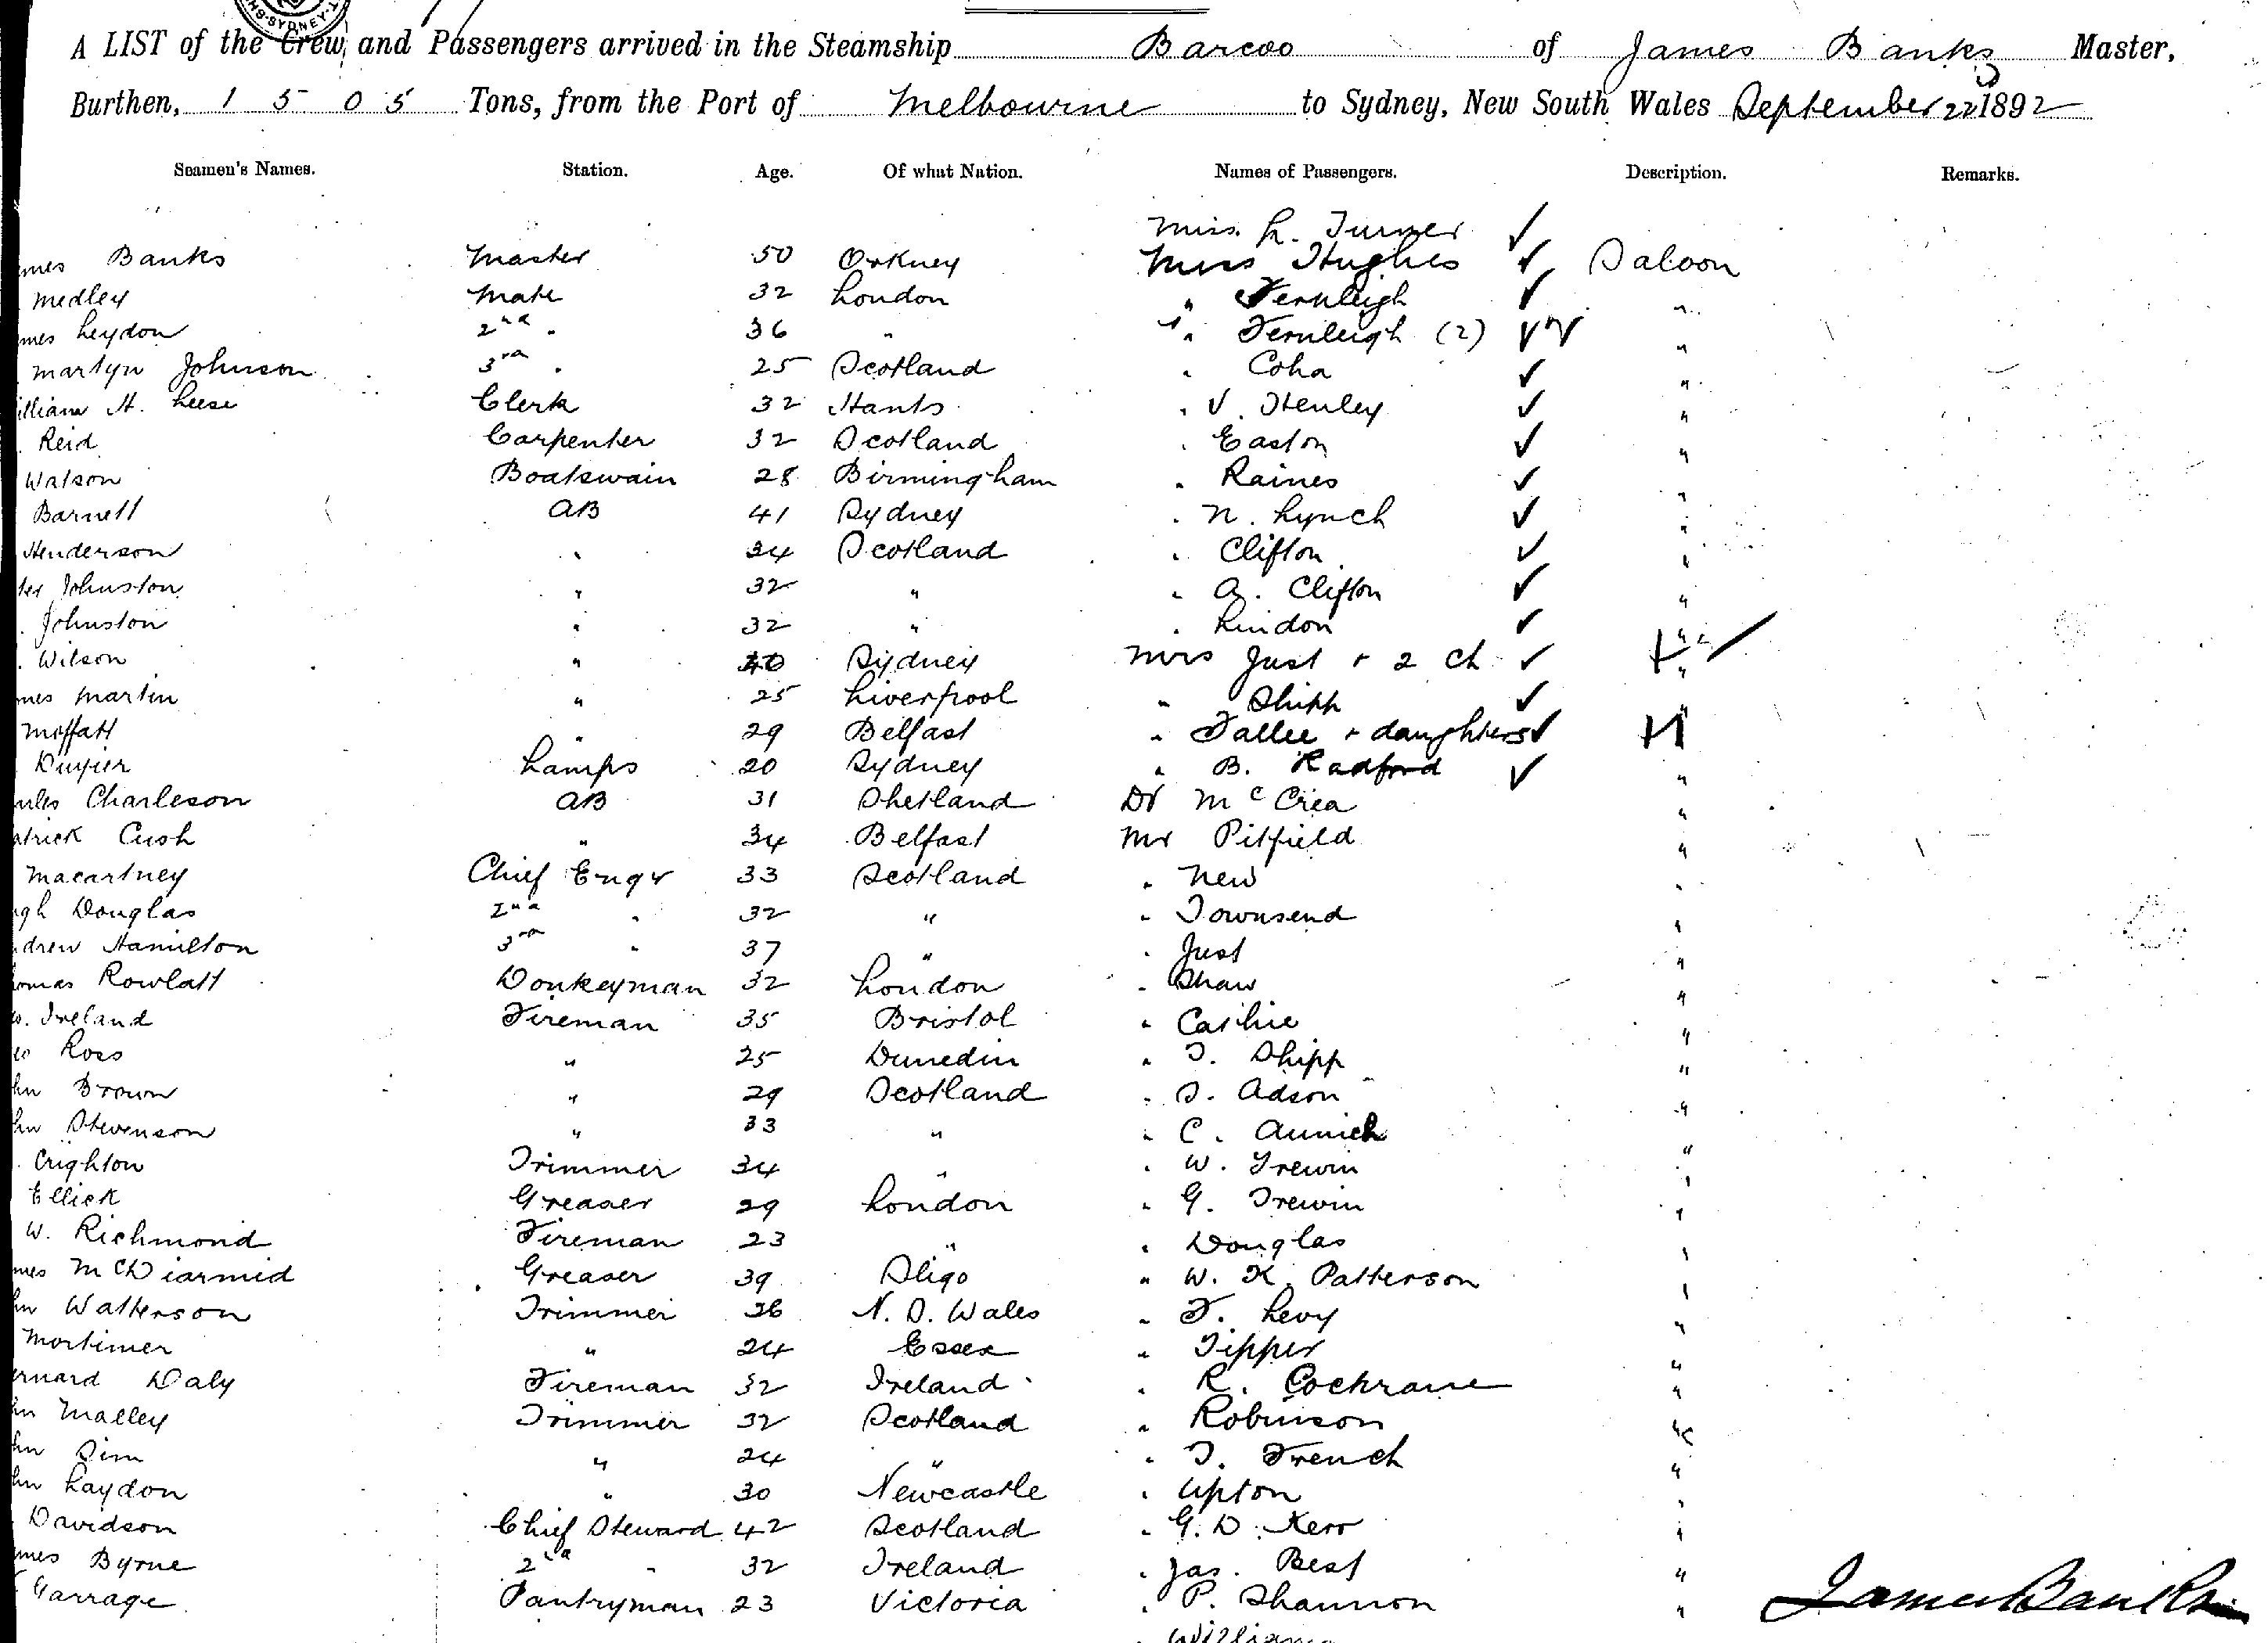 A LIST of the Crew and Passengers arrived in the Steamship Barcoo of James Banks Master,
Burthen, 1505 Tons, from the Port of Melbourne to Sydney, New South Wales September 22 1892
Seamen's Names. Station. Age. Of what Nation. Names of Passengers. Description. Remarks.
Miss L. Turner
mes Banks Master 50 Orkney Miss Hughes Saloon
Medley Mate 32 London " Fernleigh "
mes Leydon 2nd " 36 " " Fernleigh (2) "
Martyn Johnson 3rd " 25 Scotland " Coha "
illiam H. Leese Clerk 32 Hants " V. Henley "
Reid Carpenter 32 Scotland " Easton "
Watson Boatswain 28 Birmingham " Raines "
Barnett AB 41 Sydney " N. Lynch "
Henderson " 34 Scotland " Clifton "
ter Johnston " 32 " " A. Clifton "
Johnston " 32 " " Lindon "
Wilson " 40 Sydney Mrs Just + 2 ch "
mes Martin " 25 Liverpool " Shipp "
Moffatt " 29 Belfast " Fallee + daughters "
Lamps 20 Sydney " B. Radford "
arles Charleson AB 31 Shetland Dr McCrea "
atrick Cush " 34 Belfast Mr Pitfield "
Macartney Chief Engr 33 Scotland " New "
gh Douglas 2nd " 32 " " Townsend "
drew Hamilton 3rd " 37 " " Just "
omas Rowlatt Donkeyman 32 London " Shaw "
o. Ireland Fireman 35 Bristol " "
eo Ross " 25 Dunedin " T. Shipp "
hn Brown " 29 Scotland " S. Adson "
hn Stevenson " 33 " " C. "
Crighton Trimmer 34 " " W. Trewin "
Ellick Greaser 29 London " G. Trewin "
W. Richmond Fireman 23 " " Douglas "
mes McDiarmid Greaser 39 Sligo " W. K. Patterson "
hn Watterson Trimmer 36 N. S. Wales " F. Levy "
Mortimer " 24 Essex " Tipper "
ernard Daly Fireman 32 Ireland " R. Cochrane "
hn Malley Trimmer 32 Scotland " Robinson "
hn Sim " 24 " " T. French "
hn Laydon " 30 Newcastle " Upton "
Davidson Chief Steward 42 Scotland " G. D. Kerr "
mes Byrne 2nd " 32 Ireland " Jas. Best "
Garrage Pantryman 23 Victoria " P. Shannon "
James Banks
" Williams